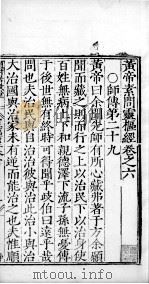 黃帝素問靈樞經卷之六
○師傳第二十九
黃帝曰余聞先師有所心藏弗著于方余願
聞而藏之則而行之上以治民下以治身使
百姓無病上下和親德澤下流子孫無憂傳
于後世無有終時可得聞乎岐伯曰遠乎哉
問也夫治民與自治治彼與治此治小與治
大治國與治家未有逆而能治之也夫惟順
mtoou.info mtoou.info